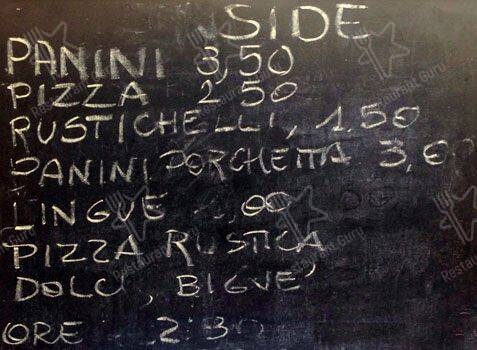 SIDE
PANINI 3,50
PIZZA 2,50
RUSTICHELLI, 1.50
PANINI PORCHETTA 3,00
LINGUE ,00
PIZZA RUSTICA
DOLCI, BIGNE'
ORE 2:30
Restaurant Guru